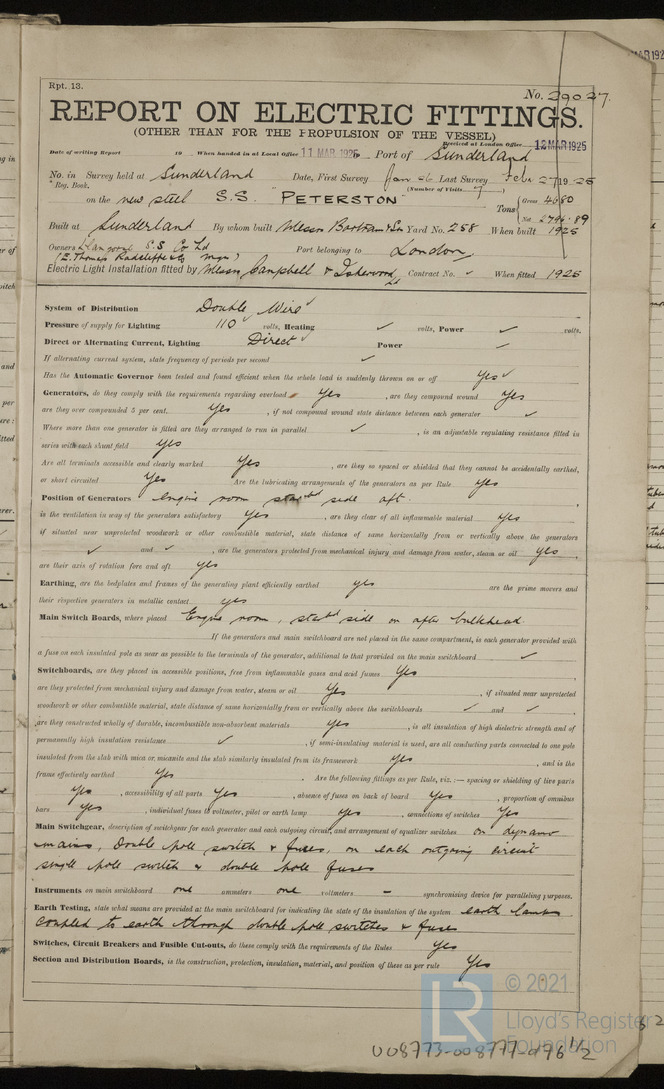 Rpt. 13.
No. 29027.
REPORT ON ELECTRIC FITTINGS.
(OTHER THAN FOR THE PROPULSION OF THE VESSEL)
Received at London Office 12 MAR 1925
Date of writing Report 19 When handed in at Local Office 11 MAR 1925 Port of Sunderland
No. in Survey held at Sunderland Date, First Survey Jan Last Survey Feby 27 1925
Reg. Book. (Number of Visits 7)
on the new steel S.S. "PETERSTON" Tons { Gross 4680
Net 2796.89
Built at Sunderland By whom built Messrs Bartram & Sons Yard No. 258 When built 1925
Owners Llangorse S.S. Co Ld Port belonging to London
(E. Thomas Radcliffe & Co Mgrs)
Electric Light Installation fitted by Messrs Campbell & Isherwood Ld Contract No. ✓ When fitted 1925
System of Distribution Double Wire ✓
Pressure of supply for Lighting 110 volts, Heating ✓ volts, Power ✓ volts.
Direct or Alternating Current, Lighting Direct ✓ Power ✓
If alternating current system, state frequency of periods per second ✓
Has the Automatic Governor been tested and found efficient when the whole load is suddenly thrown on or off Yes ✓
Generators, do they comply with the requirements regarding overload Yes, are they compound wound Yes
are they over compounded 5 per cent. Yes, if not compound wound state distance between each generator ✓
Where more than one generator is fitted are they arranged to run in parallel ✓, is an adjustable regulating resistance fitted in
series with each shunt field Yes
Are all terminals accessible and clearly marked Yes, are they so spaced or shielded that they cannot be accidentally earthed,
or short circuited Yes Are the lubricating arrangements of the generators as per Rule Yes
Position of Generators Engine room starbd side aft.
is the ventilation in way of the generators satisfactory Yes, are they clear of all inflammable material Yes
if situated near unprotected woodwork or other combustible material, state distance of same horizontally from or vertically above the generators
✓ and ✓, are the generators protected from mechanical injury and damage from water, steam or oil yes
are their axis of rotation fore and aft yes
Earthing, are the bedplates and frames of the generating plant efficiently earthed yes are the prime movers and
their respective generators in metallic contact yes
Main Switch Boards, where placed Engine room, starbd side on after bulkhead
If the generators and main switchboard are not placed in the same compartment, is each generator provided with
a fuse on each insulated pole as near as possible to the terminals of the generator, additional to that provided on the main switchboard ✓
Switchboards, are they placed in accessible positions, free from inflammable gases and acid fumes Yes
are they protected from mechanical injury and damage from water, steam or oil Yes, if situated near unprotected
woodwork or other combustible material, state distance of same horizontally from or vertically above the switchboards ✓ and ✓
are they constructed wholly of durable, incombustible non-absorbent materials Yes, is all insulation of high dielectric strength and of
permanently high insulation resistance ✓, if semi-insulating material is used, are all conducting parts connected to one pole
insulated from the slab with mica or micanite and the slab similarly insulated from its framework Yes, and is the
frame effectively earthed Yes. Are the following fittings as per Rule, viz. :— spacing or shielding of live parts
Yes, accessibility of all parts Yes, absence of fuses on back of board Yes, proportion of omnibus
bars Yes, individual fuses to voltmeter, pilot or earth lamp Yes, connections of switches Yes
Main Switchgear, description of switchgear for each generator and each outgoing circuit, and arrangement of equalizer switches on dynamo
mains, Double pole switch & fuses, on each outgoing circuit
single pole switch & double pole fuses
Instruments on main switchboard one ammeters one voltmeters – synchronising device for paralleling purposes.
Earth Testing, state what means are provided at the main switchboard for indicating the state of the insulation of the system earth lamps
coupled to earth through double pole switches & fuses
Switches, Circuit Breakers and Fusible Cut-outs, do these comply with the requirements of the Rules Yes
Section and Distribution Boards, is the construction, protection, insulation, material, and position of these as per rule Yes
© 2021
LR Lloyd's Register
Foundation
008773-008777-0196 1/2